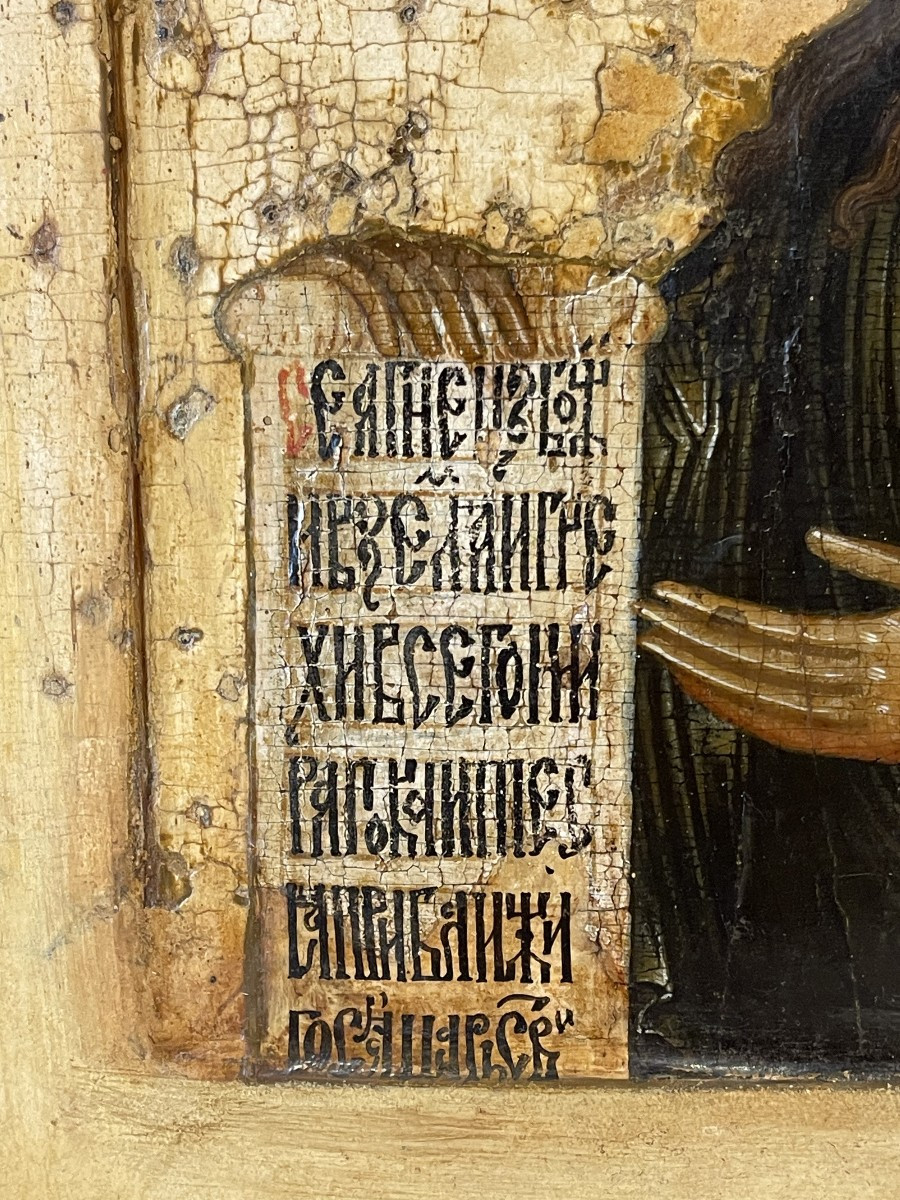 СЕАГНЕЦЪБОЖ
ИВЗЕМЛАИГРЕ
ХИВСЕГОМИ
РАПОКАИТЕС
ѦПРИБЛИЖИ
БОСѦЦАРЬСТВИ